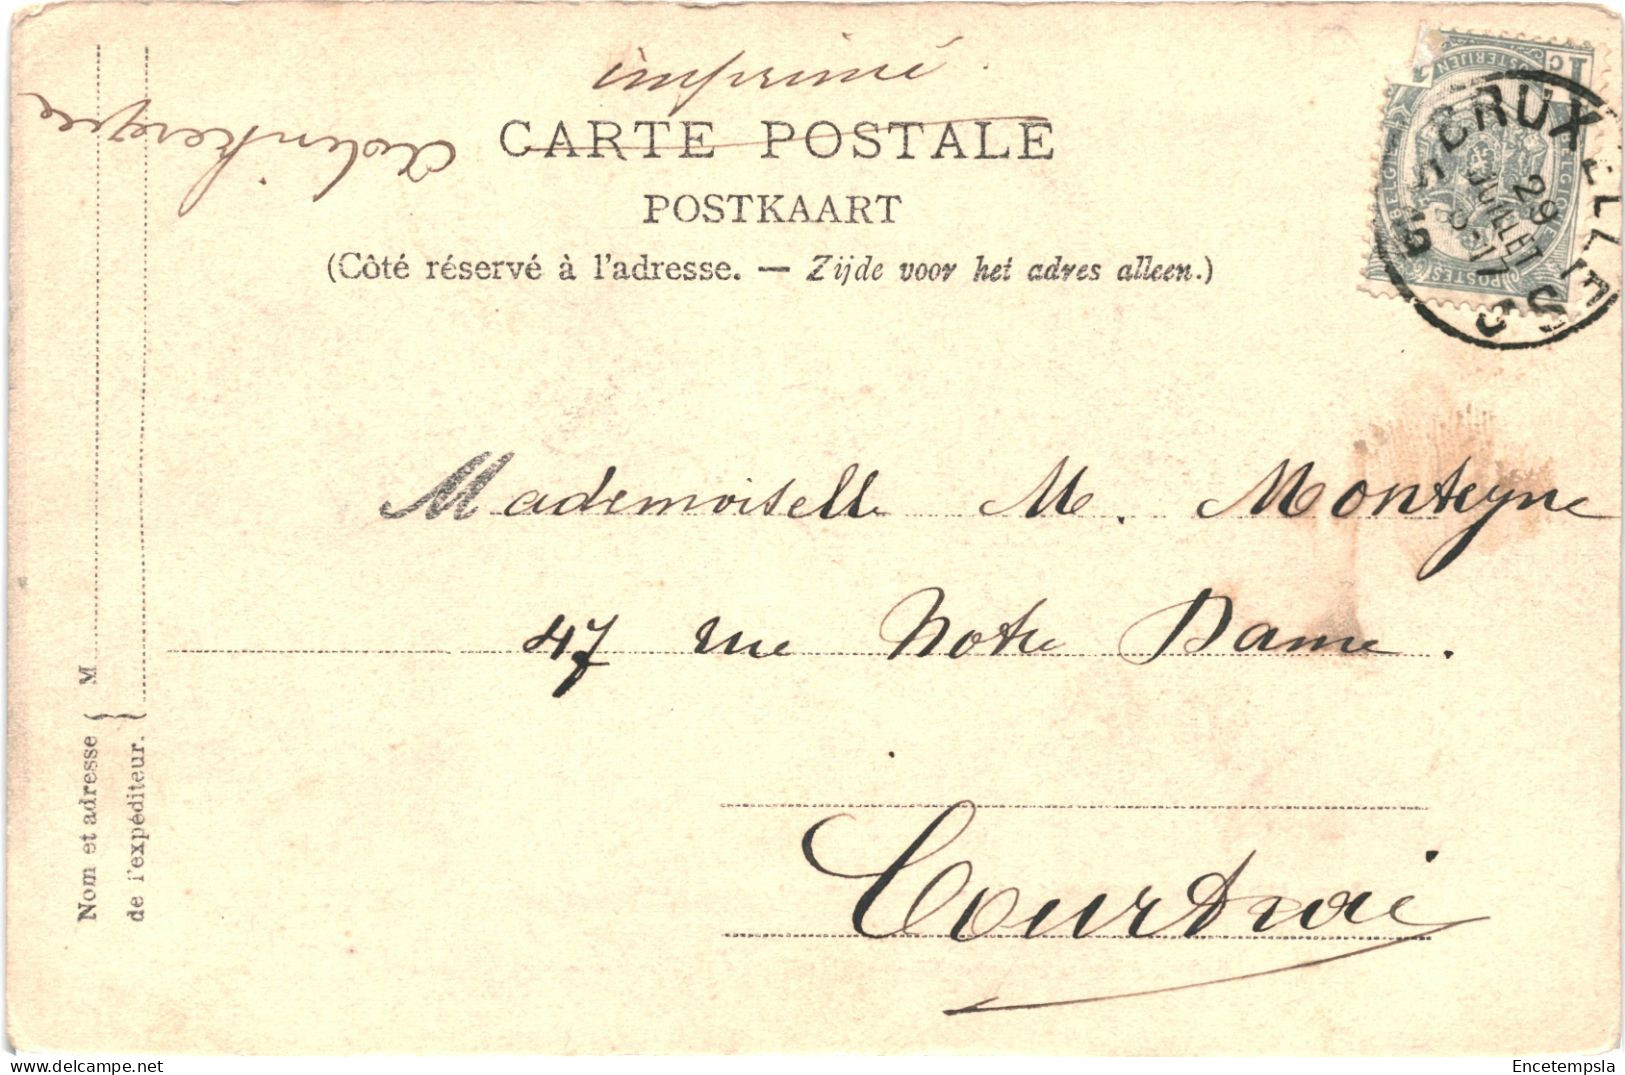 imprimé
CARTE POSTALE
POSTKAART
(Côté réservé à l'adresse. — Zijde voor het adres alleen.)
1 c
BRUXELLES 5
29
JUILLET
POSTES
Mademoiselle M. Monteyne
47 rue Notre Dame.
Courtrai
Nom et adresse { M
de l'expéditeur. }
Encetempsla